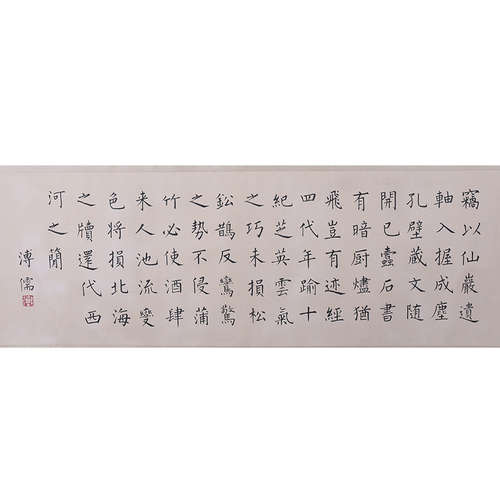 竊以仙巖遺
軸入握成塵
孔壁藏文随
開已蠹石書
有暗厨燼猶
飛豈有迹經
四代年踰十
紀芝英雲氣
之巧未損松
鈆鵲反鸞驚
之勢不侵蒲
竹必使酒肆
来人池流變
色将損北海
之牘還代西
河之簡
溥儒